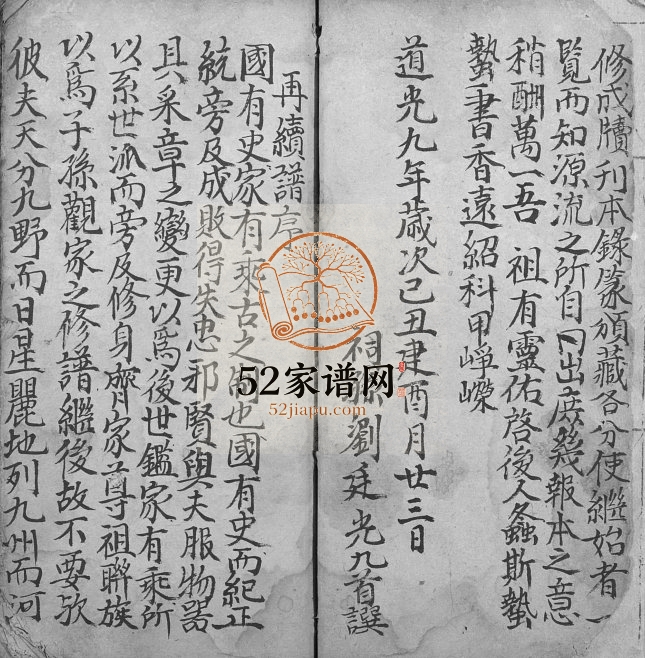 修成牘刊本錄篆頒藏各分使繼始者一
覽而知源流之所自曰出庶幾報本之意
稍酬萬一吾 祖有靈佑啓後人螽斯蟄
蟄書香遠紹科甲崢嶸
道光九年歲次己丑建酉月廿三日
劉廷光九首譔
再續譜序
國有史家有乘古之也國有史而紀正
統旁及成敗得失忠邪賢與夫服物器
具采章之變更以爲後世鑑家有乘所
以系世派而旁及修身齊家尊祖聯族
以爲子孫觀家之修譜繼後故不要欤
彼夫天分九野而日星麗地列九州而河
52家谱网
52jiapu.com